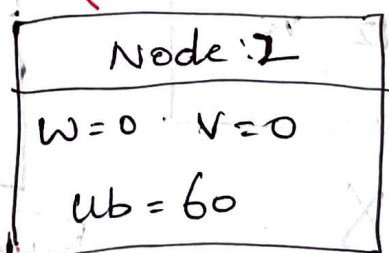 Node:2
W=0 V=0
Ub=60